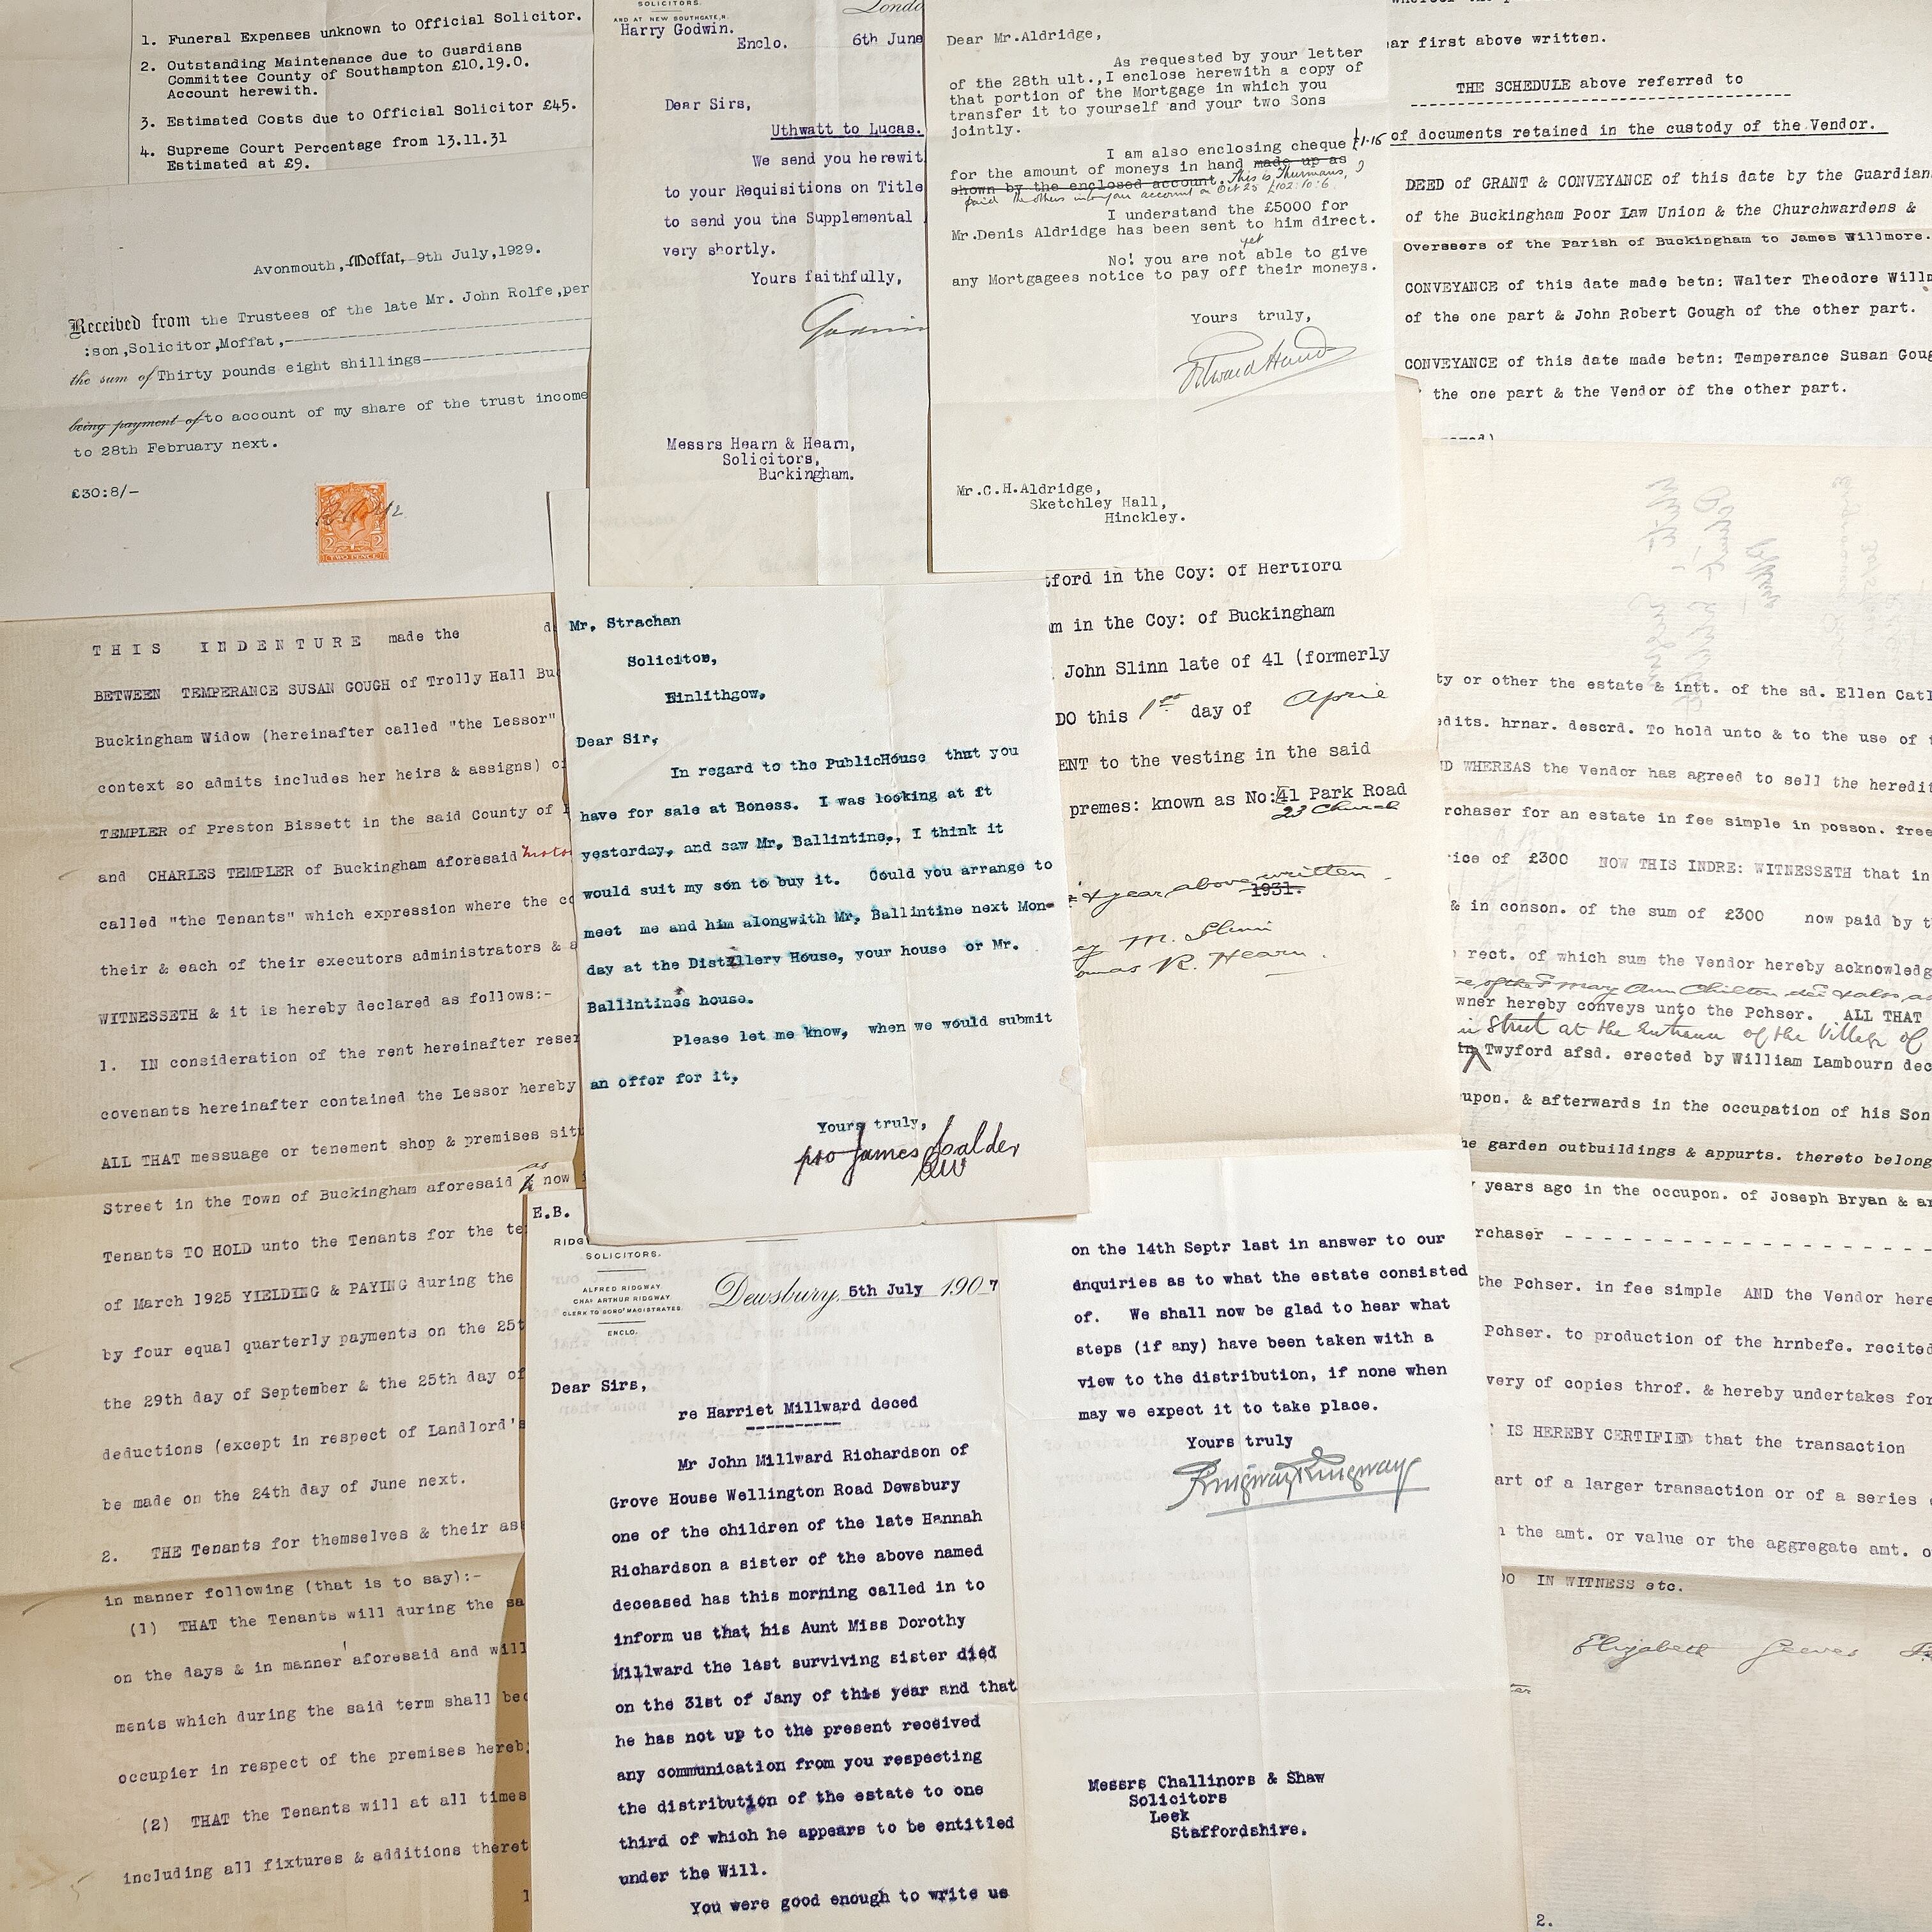 1. Funeral Expenses unknown to Official Solicitor.
2. Outstanding Maintenance due to Guardians
Committee County of Southampton £10.19.0.
Account herewith.
3. Estimated Costs due to Official Solicitor £45.
4. Supreme Court Percentage from 13.11.31
Estimated at £9.
Avonmouth, Moffat, 9th July, 1929.
Received from the Trustees of the late Mr. John Rolfe, per
:son, Solicitor, Moffat,-
the sum of Thirty pounds eight shillings
being payment of to account of my share of the trust income
to 28th February next.
£30:8/-
TWO PENCE
SOLICITORS.
AND AT NEW SOUTHGATE, N.
Harry Godwin.
Enclo. 6th June
Dear Sirs,
Uthwatt to Lucas.
We send you herewit
to your Requisitions on Title
to send you the Supplemental
very shortly.
Yours faithfully,
Messrs Hearn & Hearn,
Solicitors,
Buckingham.
Dear Mr.Aldridge,
As requested by your letter
of the 28th ult., I enclose herewith a copy of
that portion of the Mortgage in which you
transfer it to yourself and your two Sons
jointly.
I am also enclosing cheque
for the amount of moneys in hand made up as
shown by the enclosed account. This is Thurmans,
paid the others into your account on Oct 25 £102:10:6
I understand the £5000 for
Mr.Denis Aldridge has been sent to him direct.
yet
No! you are not able to give
any Mortgagees notice to pay off their moneys.
Yours truly,
Mr.C.H.Aldridge,
Sketchley Hall,
Hinckley.
ar first above written.
THE SCHEDULE above referred to
of documents retained in the custody of the Vendor.
DEED of GRANT & CONVEYANCE of this date by the Guardian
of the Buckingham Poor Law Union & the Churchwardens &
Overseers of the Parish of Buckingham to James Willmore.
CONVEYANCE of this date made betn: Walter Theodore Willm
of the one part & John Robert Gough of the other part.
CONVEYANCE of this date made betn: Temperance Susan Goug
the one part & the Vendor of the other part.
THIS INDENTURE made the
BETWEEN TEMPERANCE SUSAN GOUGH of Trolly Hall Buc
Buckingham Widow (hereinafter called "the Lessor"
context so admits includes her heirs & assigns) o
TEMPLER of Preston Bissett in the said County of
and CHARLES TEMPLER of Buckingham aforesaid
called "the Tenants" which expression where the co
their & each of their executors administrators & a
WITNESSETH & it is hereby declared as follows:-
1. IN consideration of the rent hereinafter reser
covenants hereinafter contained the Lessor hereby
ALL THAT messuage or tenement shop & premises sit
as
Street in the Town of Buckingham aforesaid now
Tenants TO HOLD unto the Tenants for the te
of March 1925 YIELDING & PAYING during the
by four equal quarterly payments on the 25t
the 29th day of September & the 25th day of
deductions (except in respect of Landlord's
be made on the 24th day of June next.
2. THE Tenants for themselves & their as
in manner following (that is to say):-
(1) THAT the Tenants will during the sa
on the days & in manner aforesaid and will
ments which during the said term shall bec
occupier in respect of the premises hereb
(2) THAT the Tenants will at all times
including all fixtures & additions theret
Mr. Strachan
Solicitor,
Linlithgow,
Dear Sir,
In regard to the PublicHouse that you
have for sale at Boness. I was looking at it
yesterday, and saw Mr. Ballintine., I think it
would suit my son to buy it. Could you arrange to
meet me and him alongwith Mr. Ballintine next Mon-
day at the Distillery House, your house or Mr.
Ballintines house.
Please let me know, when we would submit
an offer for it,
Yours truly,
pro James Calder
tford in the Coy: of Hertford
m in the Coy: of Buckingham
John Slinn late of 41 (formerly
DO this 1st day of April
ENT to the vesting in the said
premes: known as No:41 Park Road
23 Church
& year above written
1931.
M. Slinn
omas R. Hearn.
ty or other the estate & intt. of the sd. Ellen Catl
edits. hrnar. descrd. To hold unto & to the use of
D WHEREAS the Vendor has agreed to sell the heredit
rchaser for an estate in fee simple in posson. free
ice of £300 NOW THIS INDRE: WITNESSETH that in
& in conson. of the sum of £300 now paid by t
rect. of which sum the Vendor hereby acknowledg
wner hereby conveys unto the Pchser. ALL THAT
in Street at the Entrance of the Village of
in Twyford afsd. erected by William Lambourn dec
upon. & afterwards in the occupation of his Son
he garden outbuildings & appurts. thereto belong
years ago in the occupon. of Joseph Bryan & a
rchaser
the Pchser. in fee simple AND the Vendor here
Pchser. to production of the hrnbefe. recited
very of copies throf. & hereby undertakes for
IS HEREBY CERTIFIED that the transaction
art of a larger transaction or of a series
the amt. or value or the aggregate amt. o
IN WITNESS etc.
Elizabeth Geeves
2.
E.B.
RIDG
SOLICITORS.
ALFRED RIDGWAY
CHAS ARTHUR RIDGWAY
CLERK TO BORO' MAGISTRATES.
ENCLO.
Dewsbury, 5th July 1907
Dear Sirs,
re Harriet Millward deced
Mr John Millward Richardson of
Grove House Wellington Road Dewsbury
one of the children of the late Hannah
Richardson a sister of the above named
deceased has this morning called in to
inform us that his Aunt Miss Dorothy
Millward the last surviving sister died
on the 31st of Jany of this year and that
he has not up to the present received
any communication from you respecting
the distribution of the estate to one
third of which he appears to be entitled
under the Will.
You were good enough to write us
on the 14th Septr last in answer to our
enquiries as to what the estate consisted
of. We shall now be glad to hear what
steps (if any) have been taken with a
view to the distribution, if none when
may we expect it to take place.
Yours truly
Ridgway & Ridgway
Messrs Challinors & Shaw
Solicitors
Leek
Staffordshire.